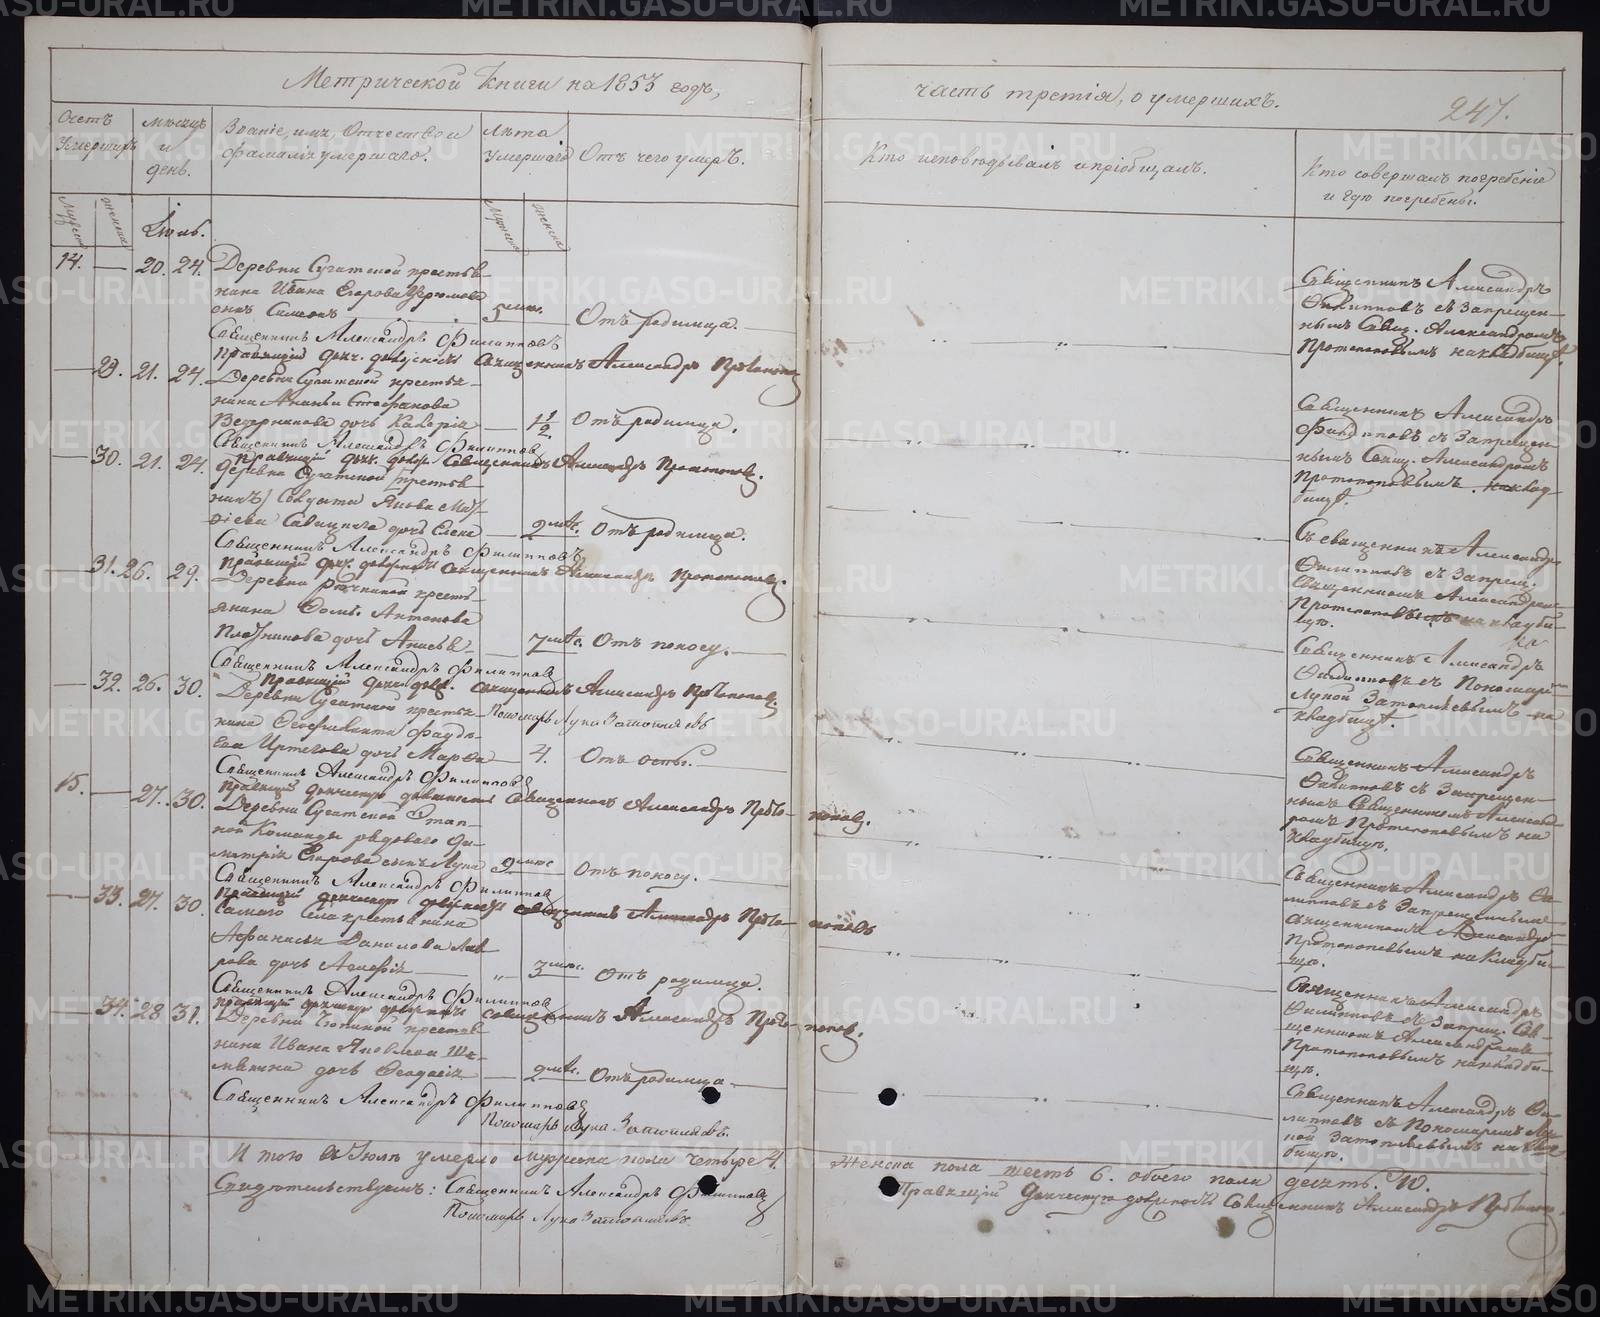 Метрической книги на 1853 годъ,
часть третія, о умершихъ.
247.
Счетъ умершихъ
мѣсяцъ и день.
Званіе, имя, Отчество и фамилія умершаго.
Лѣта умершаго
Отъ чего умеръ.
Кто исповѣдывалъ и пріобщалъ.
Кто совершалъ погребеніе и гдѣ погребены.
Мужеска
женска
Мужеска
женска
Іюль.
14. — 20. 24. Деревни Сугатской крестья-
нина Ивана Егорова
сынъ Симеонъ 5 мѣс. Отъ родимца.
Священникъ Александръ
Филипповъ съ Запрещен-
нымъ Свящ. Александромъ
Протопоповымъ на кладбищѣ.
Священникъ Александръ Филипповъ
Правящій дьяч. должность Священникъ Александръ Протопоповъ
— 29. 21. 24. Деревни Сугатской крестья-
нина Ананьи Стефанова
дочь 1 1/2 Отъ родимца.
Священникъ Александръ
Филипповъ съ Запрещен-
нымъ Свящ. Александромъ
Протопоповымъ на клад-
бищѣ.
Священникъ Александръ Филипповъ
Правящій дьяч. долж. Священникъ Александръ Протопоповъ.
— 30. 21. 24. Деревни Сугатской крестья-
нинъ) Солдата Якова Мат-
ѳіева дочь Елена 2 мѣс. Отъ родимца.
Священникъ Александръ
Филипповъ съ Запрещ.
Священникомъ Александромъ
Протопоповымъ на кладби-
щѣ.
Священникъ Александръ Филипповъ
Правящій дьяч. должность Священникъ Александръ Протопоповъ.
— 31. 26. 29. Деревни крестья-
янина Антонова
Плотникова дочь Анисья 7 мѣс. Отъ поносу.
Священникъ Александръ
Филипповъ съ Пономаремъ
Лукой Затопляевымъ на
кладбищѣ.
Священникъ Александръ Филипповъ
Правящій дьяч. долж. Священникъ Александръ Протопоповъ.
Пономарь Лука Затопляевъ
— 32. 26. 30. Деревни Сугатской крестья-
нина Феофилакта Фадѣ-
ева Иртегова дочь Марѳа 4. Отъ оспы.
Священникъ Александръ
Филипповъ съ Запрещен-
нымъ Священникомъ Александ-
ромъ Протопоповымъ на
кладбищѣ.
Священникъ Александръ Филипповъ
Правящій дьяческую должность Священникъ Александръ Прото- поповъ.
15. — 27. 30. Деревни Сугатской Этап-
ной Команды рядоваго Ди-
митрія Егорова сынъ Лука 9 мѣс. Отъ поносу.
Священникъ Александръ Фи-
липповъ съ Запрещеннымъ
Священникомъ Александромъ
Протопоповымъ на кладби-
щѣ.
Священникъ Александръ Филипповъ
Правящій дьяческую должность Священникъ Александръ Прото- поповъ
— 33. 27. 30. Самаго Села крестьянина
Афанасія Данилова Лав-
рова дочь Агафія „ 3 мѣс. Отъ родимца.
Священникъ Александръ
Филипповъ съ Запрещ. Свя-
щенникомъ Александромъ
Протопоповымъ на кладби-
щѣ.
Священникъ Александръ Филипповъ
Правящій дьяческую должность Священникъ Александръ Прото- поповъ.
— 34. 28. 31. Деревни крестья-
нина Ивана Яковлева Ше-
мякина дочь Феодосія 2 мѣс. Отъ родимца
Священникъ Александръ Фи-
липповъ съ Пономаремъ Лу-
кой Затопляевымъ на клад-
бищѣ.
Священникъ Александръ Филипповъ
Пономарь Лука Затопляевъ.
И того въ Іюлѣ умерло мужеска пола четыре 4. женска пола шесть 6. обоего пола десять. 10.
Свидѣтельствуемъ: Священникъ Александръ Филипповъ
Правящій Дьяческую должность Священникъ Александръ Протопоповъ
Пономарь Лука Затопляевъ.
METRIKI.GASO-URAL.RU